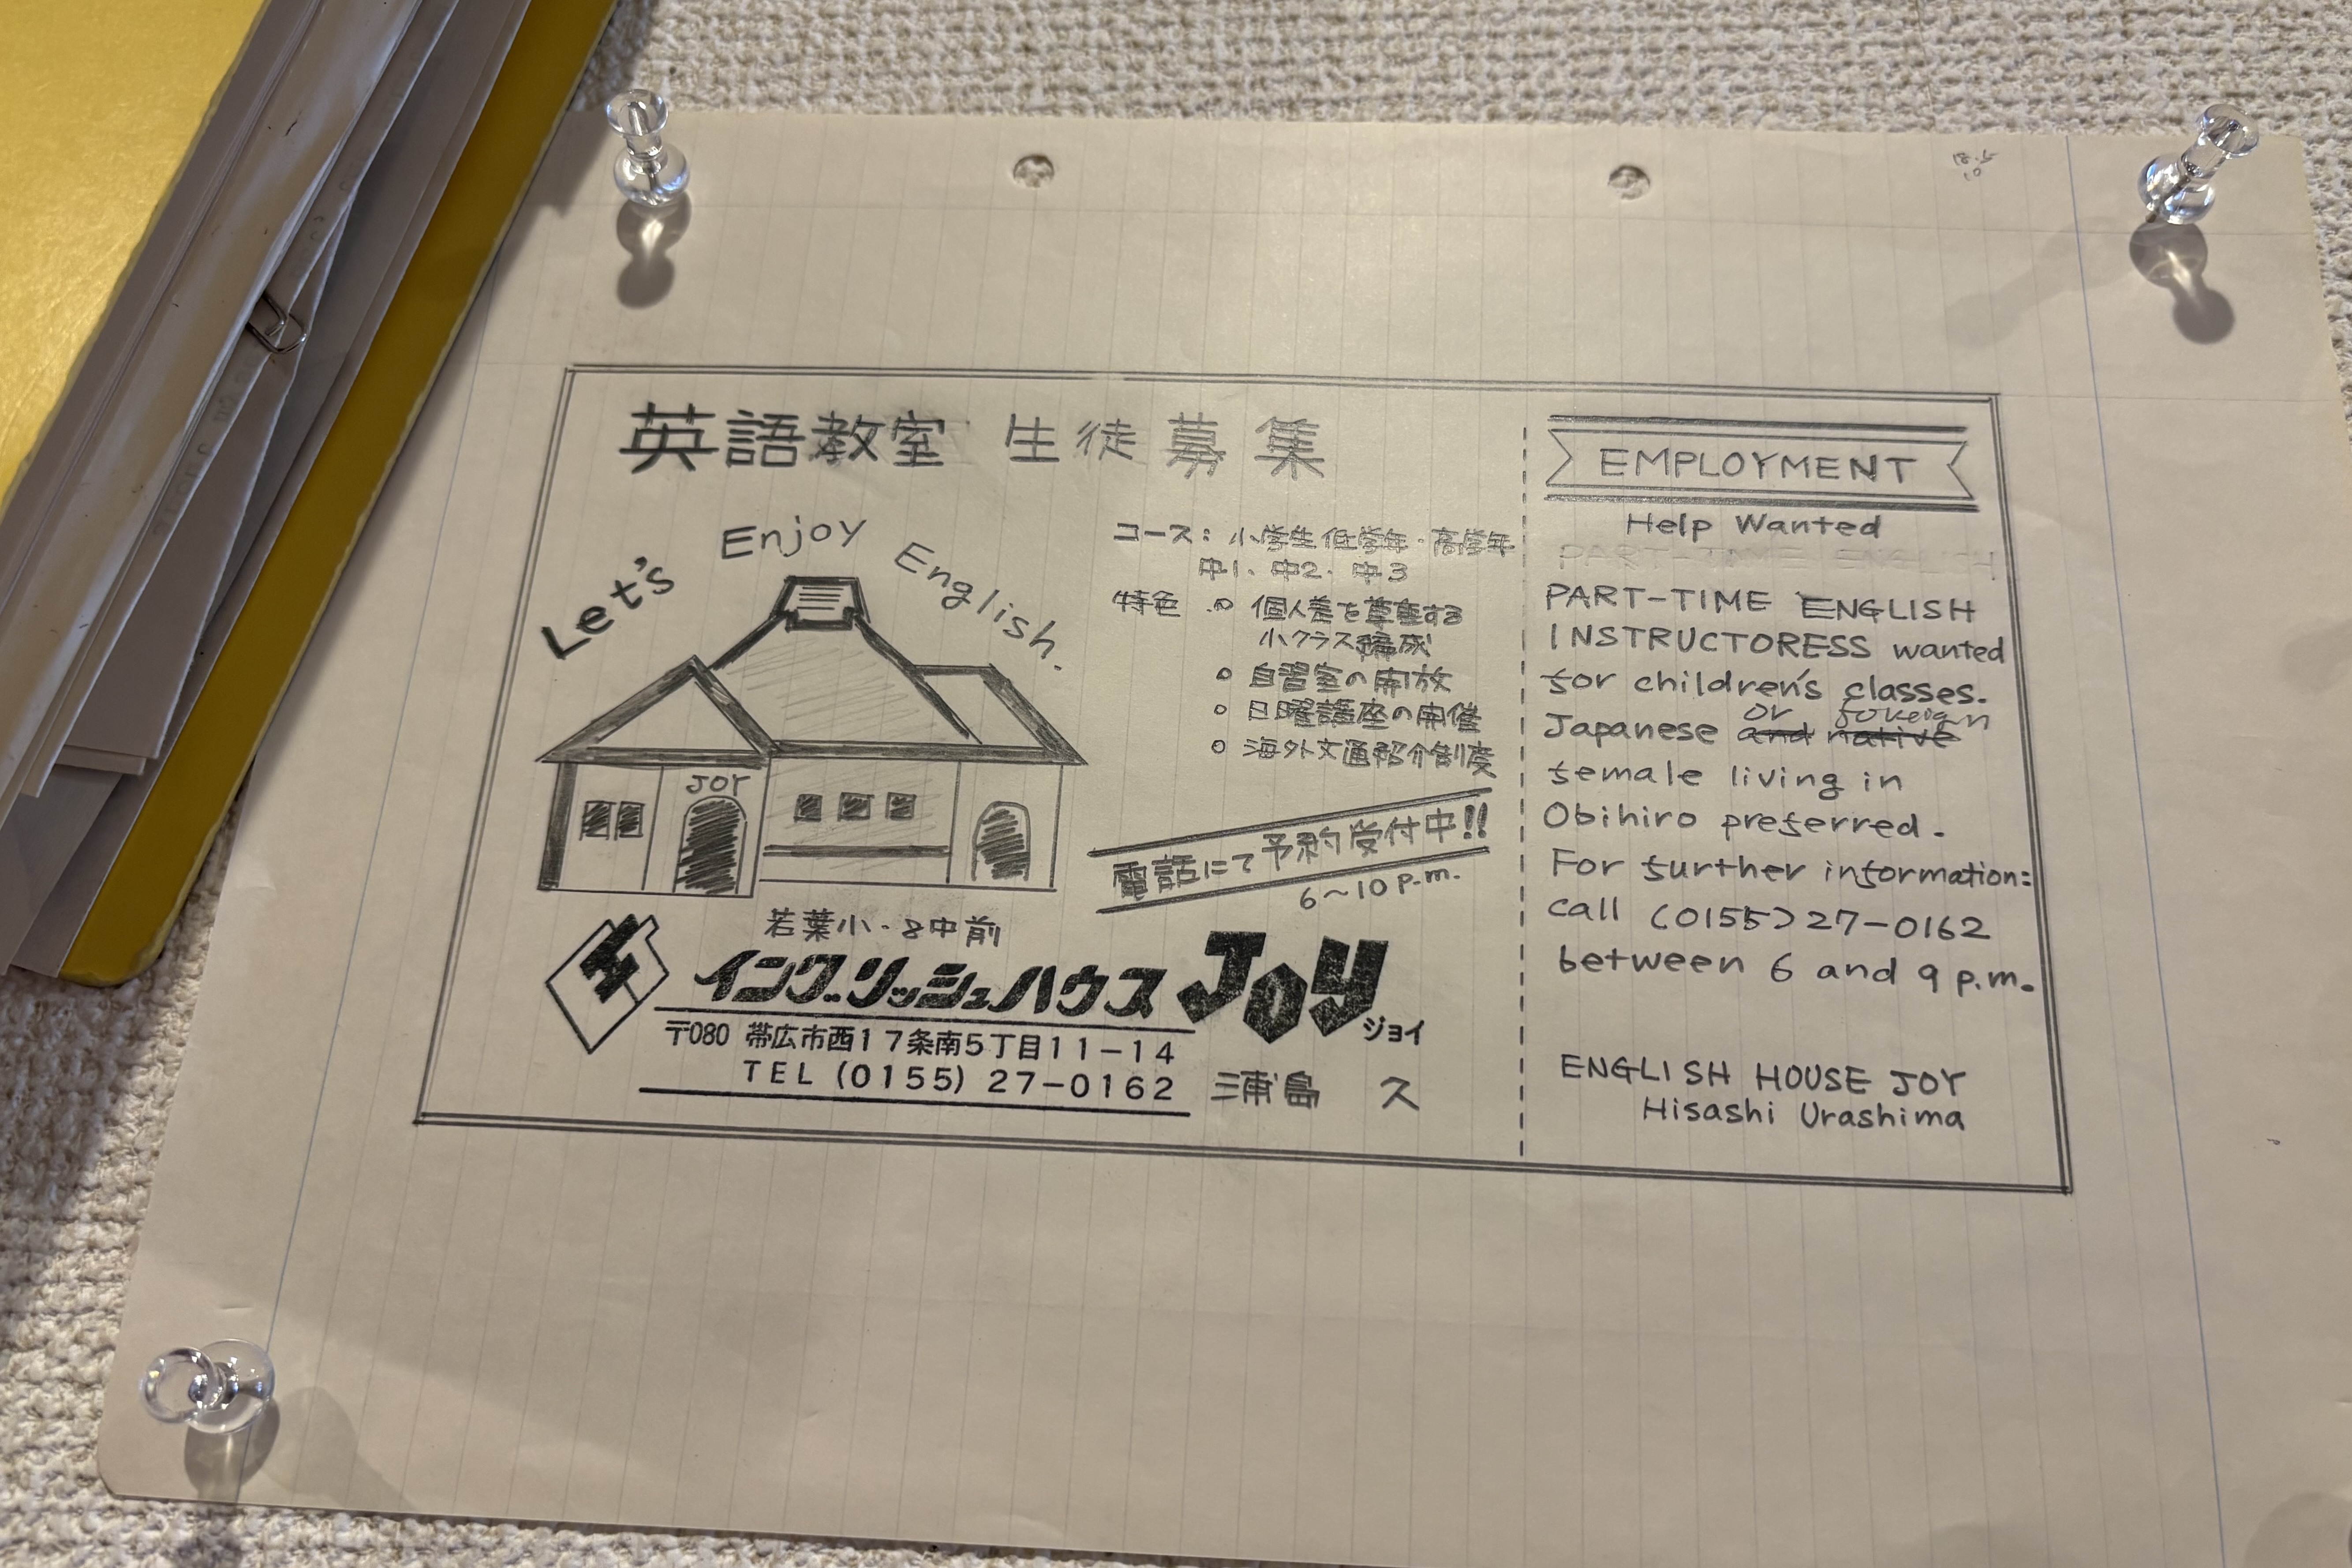 英語教室 生徒募集
Let's Enjoy English.
コース: 小学生 低学年・高学年
中1・中2・中3
特色 ○ 個人差を尊重する
小クラス編成
○ 自習室の開放
○ 日曜講座の開催
○ 海外文通紹介制度
JOY
電話にて予約受付中!!
6～10 p.m.
若葉小・8中前
イングリッシュハウス JOY
ジョイ
〒080 帯広市西17条南5丁目11-14
TEL (0155) 27-0162
三浦島 久
EMPLOYMENT
Help Wanted
PART-TIME ENGLISH
PART-TIME ENGLISH
INSTRUCTORESS wanted
for children's classes.
or foreign
Japanese and native
female living in
Obihiro preferred.
For further information:
call (0155) 27-0162
between 6 and 9 p.m.
ENGLISH HOUSE JOY
Hisashi Urashima